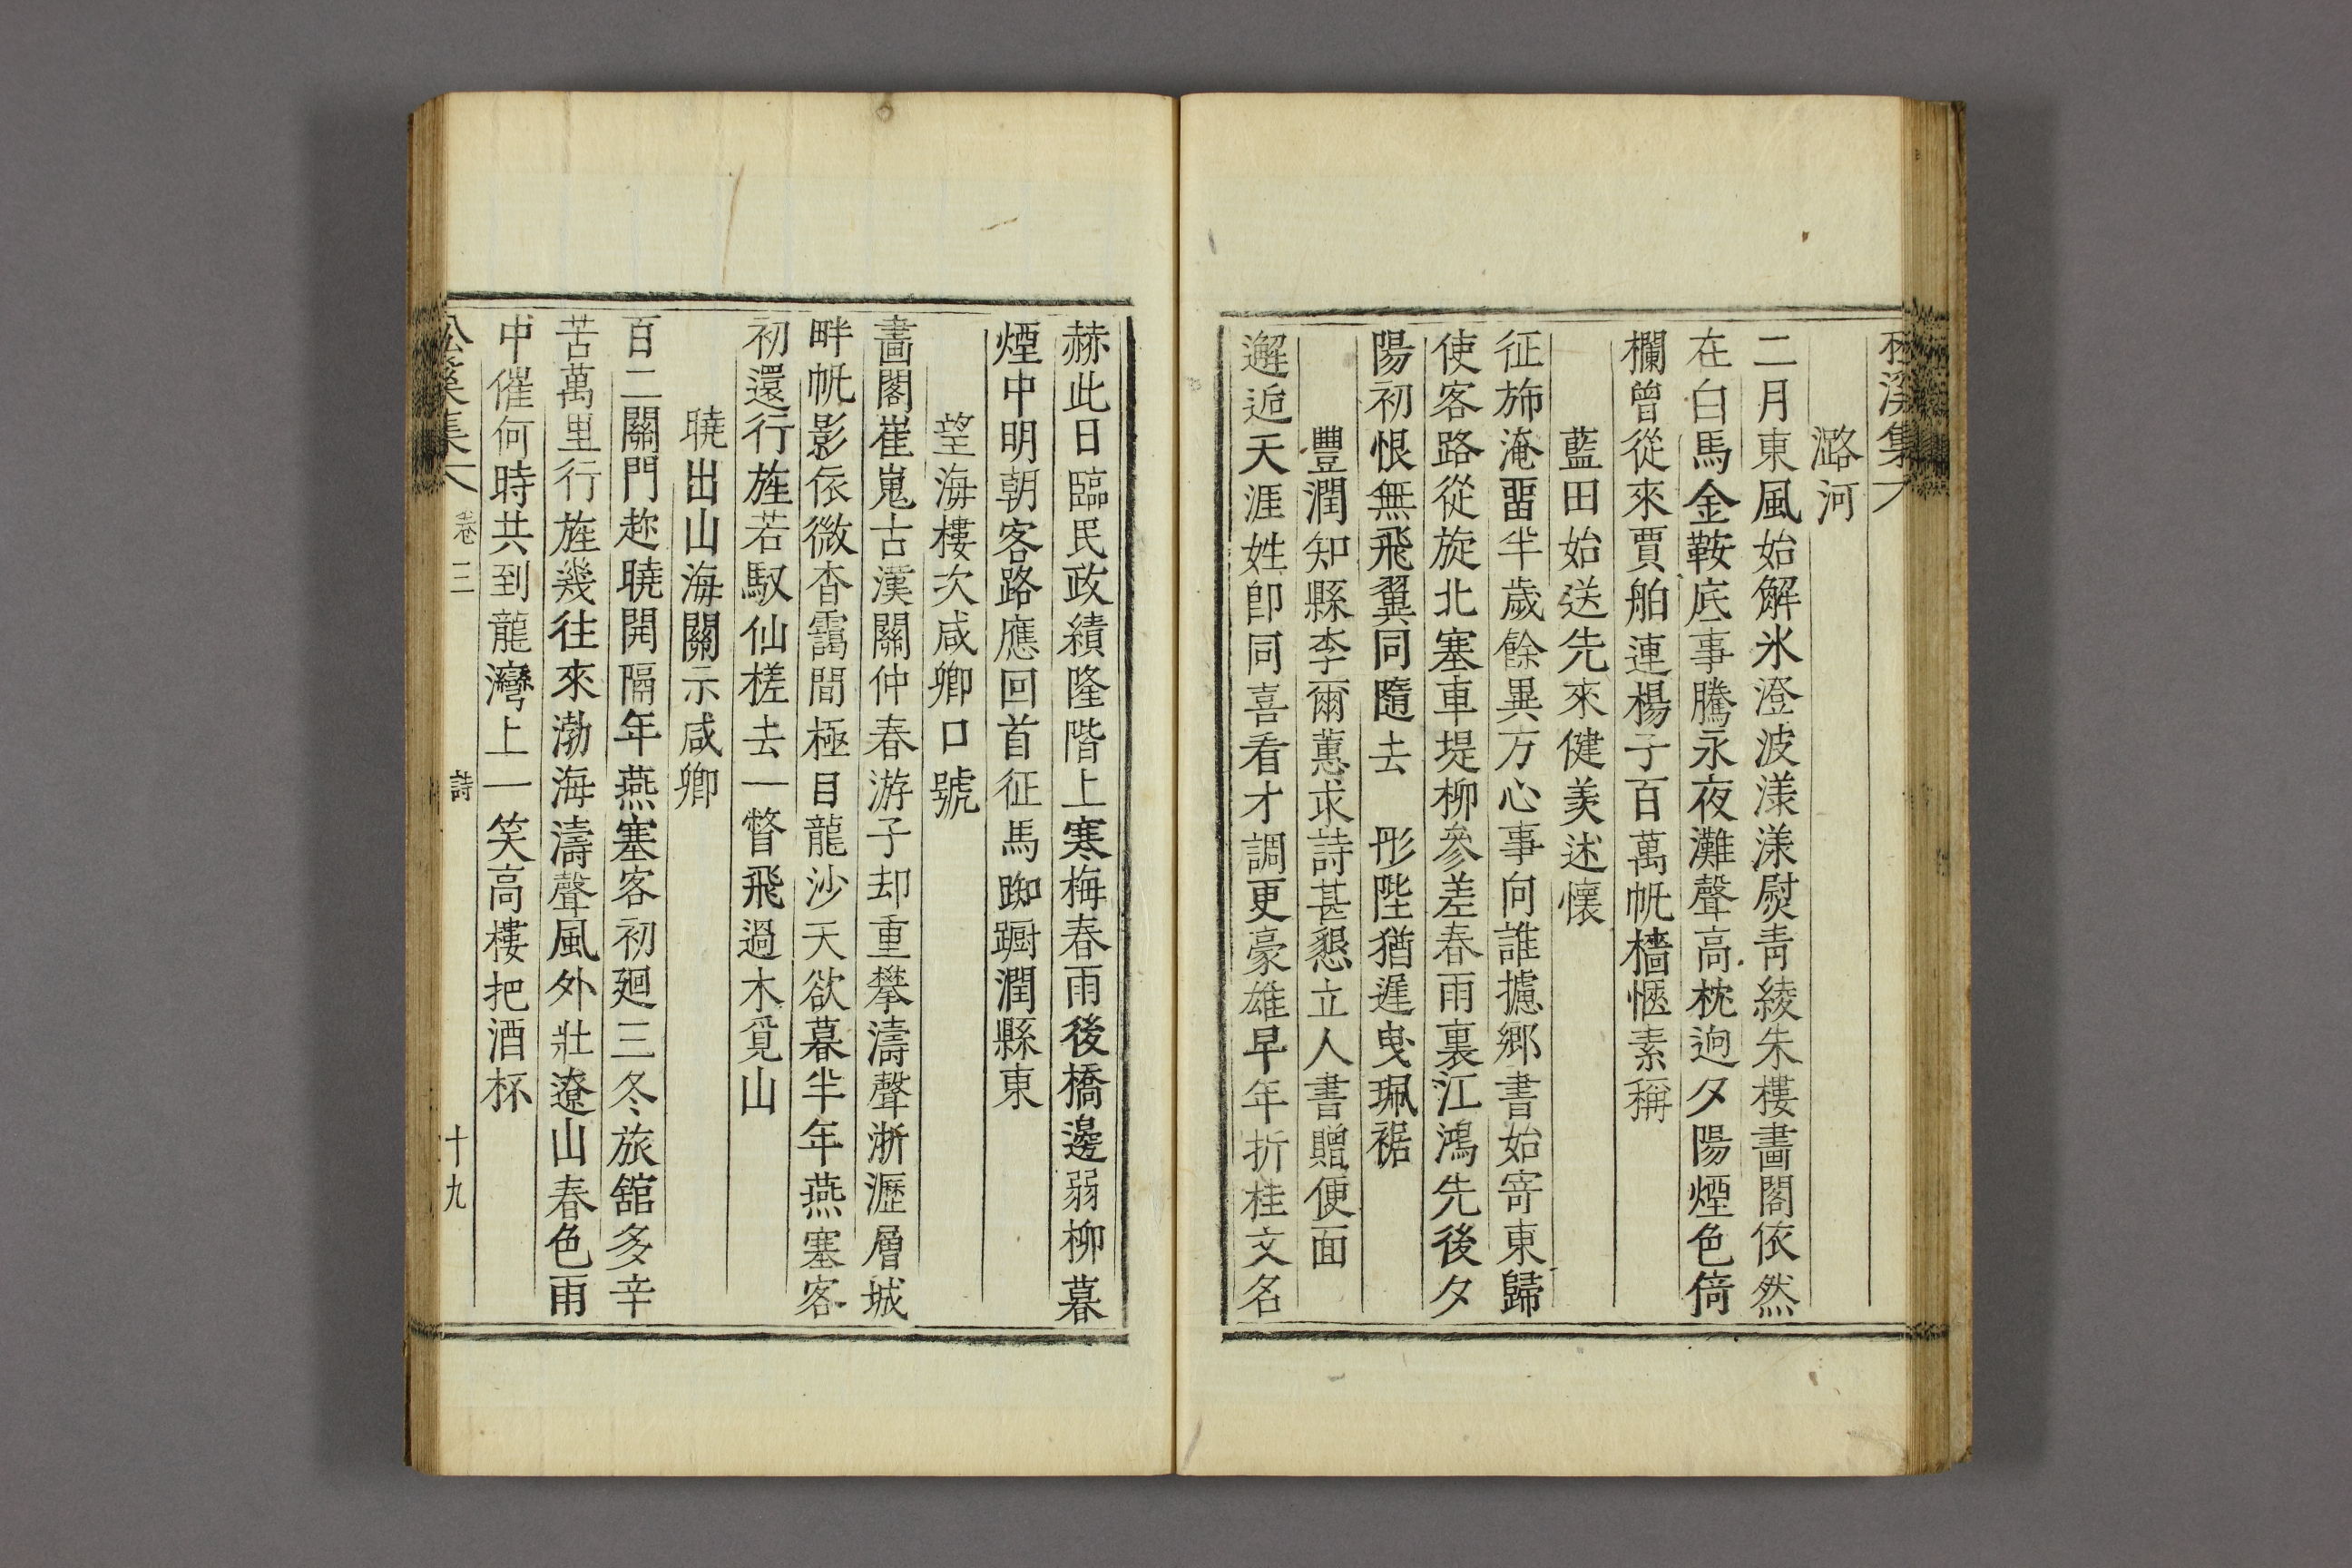 潞河
二月東風始解氷澄波漾漾熨靑綾朱樓畵閣依然
在白馬金鞍底事騰永夜灘聲高枕逈夕陽煙色倚
欄曾從來賈舶連楊子百萬帆檣愜素稱
藍田始送先來健羡述懷
征斾淹留半歲餘異方心事向誰攄鄕書始寄東歸
使客路從旋北塞車堤柳參差春雨裏江鴻先後夕
陽初恨無飛翼同隨去 彤陛猶遲曳珮裾
豐潤知縣李爾蕙求詩甚懇立人書贈便面
邂逅天涯姓卽同喜看才調更豪雄早年折桂文名
赫此日臨民政績隆階上寒梅春雨後橋邊弱柳暮
煙中明朝客路應回首征馬踟躕潤縣東
望海樓次咸卿口號
畵閣崔嵬古漢關仲春游子却重攀濤聲淅瀝層城
畔帆影依微杳靄間極目龍沙天欲暮半年燕塞客
初還行旌若馭仙槎去一瞥飛過木覓山
曉出山海關示咸卿
百二關門趁曉開隔年燕塞客初廻三冬旅舘多辛
苦萬里行旌幾往來渤海濤聲風外壯遼山春色雨
中催何時共到龍灣上一笑高樓把酒杯
卷三 詩 十九